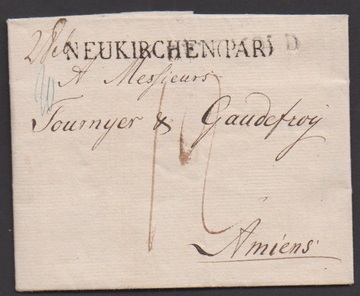 NEUKIRCHEN(PAR)
A Messieurs
Tournyer & Gaudefroy
Amiens